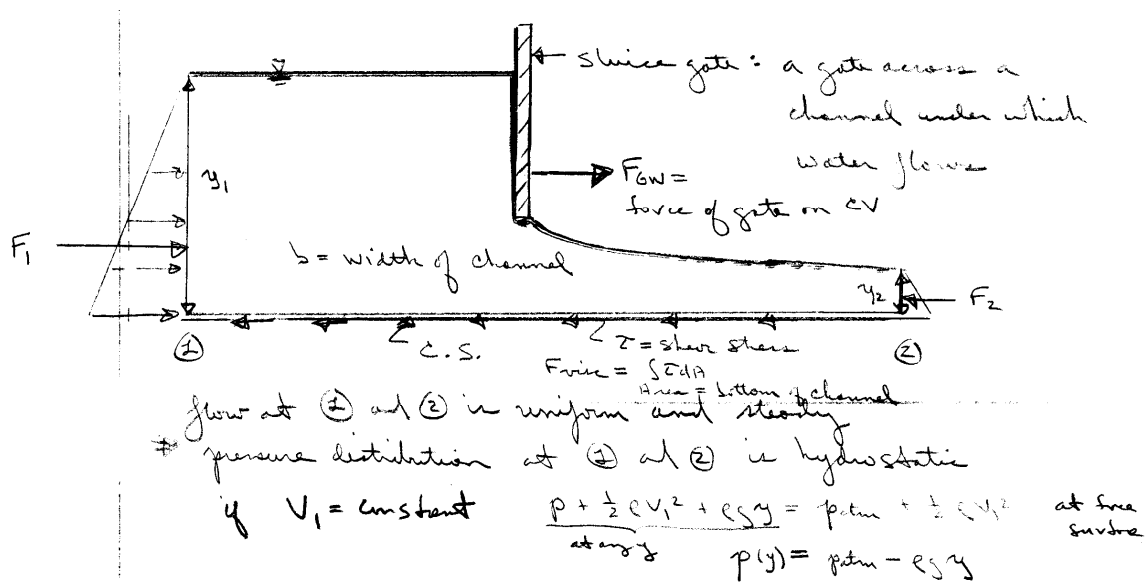 sluice gate : a gate across a
channel under which
water flows
y₁
F_GW =
force of gate on CV
F₁
b = width of channel
y₂
F₂
①
C.S.
τ = shear stress
②
Fvisc = ∫τdA
Area = bottom of channel
flow at ① and ② is uniform and steady
pressure distribution at ① and ② is hydrostatic
if V₁ = constant p + ½ ρV₁² + ρgy = patm + ½ ρV₁² at free
surface
at any y
p(y) = patm - ρgy